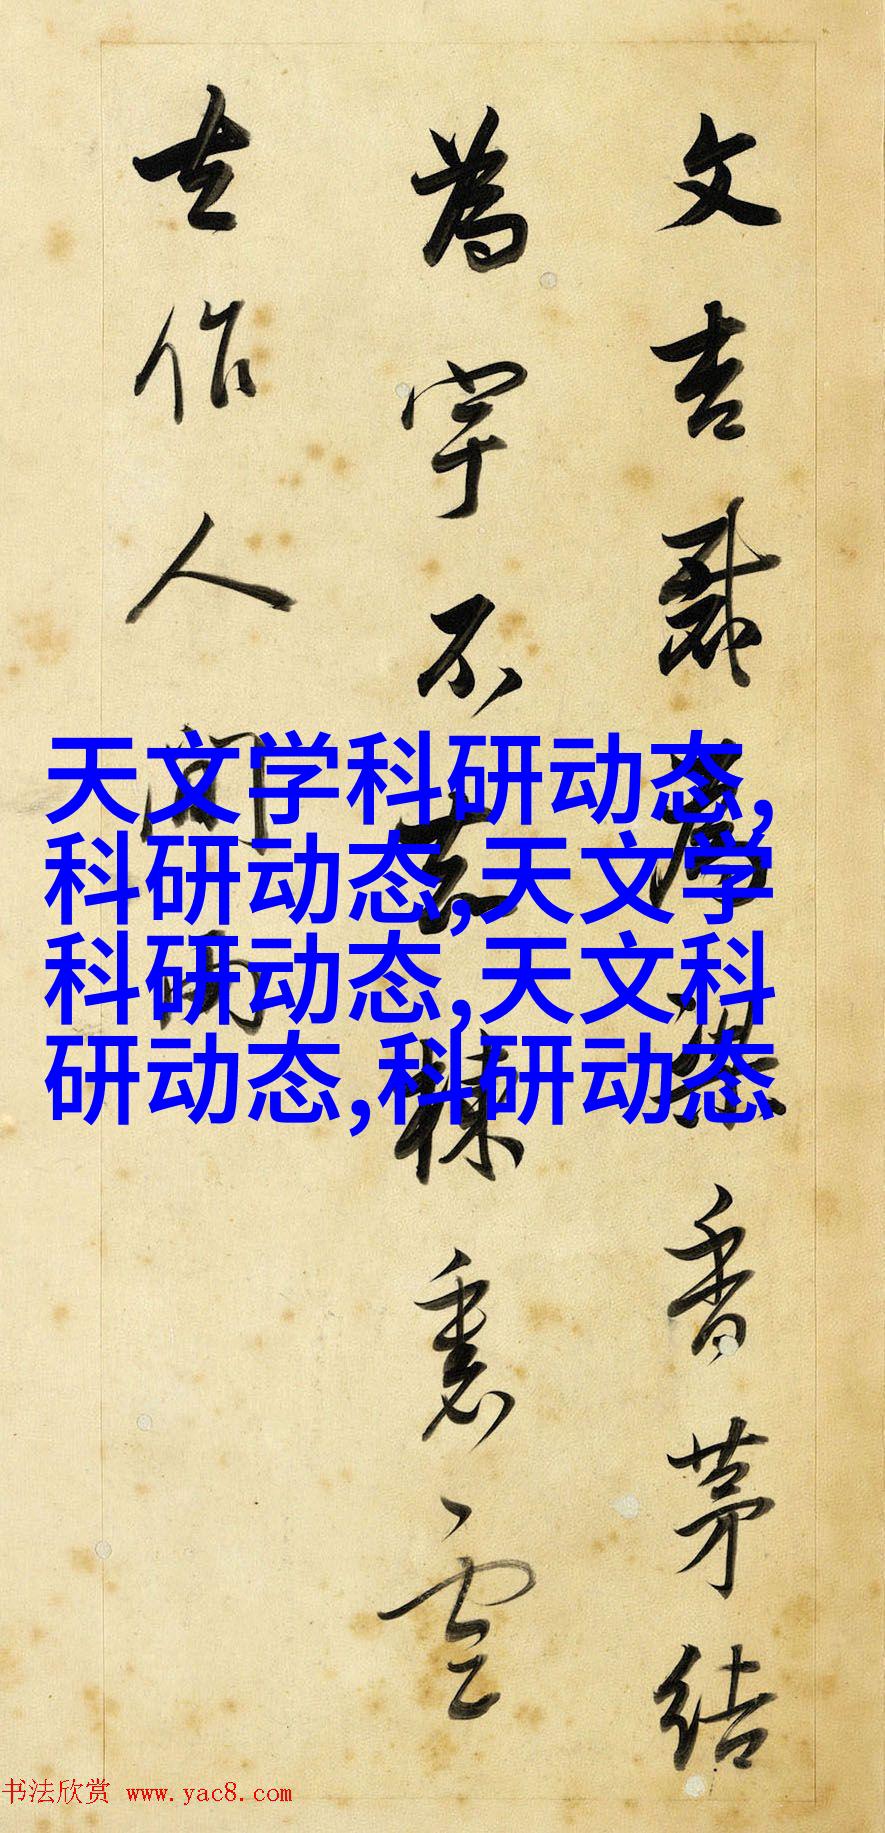 文杏裁為梁香茅結
為宇不知棟裏雲
去作人間雨
天文学科研动态,
科研动态,天文学
科研动态,天文科
研动态,科研动态
书法欣赏 www.yac8.com